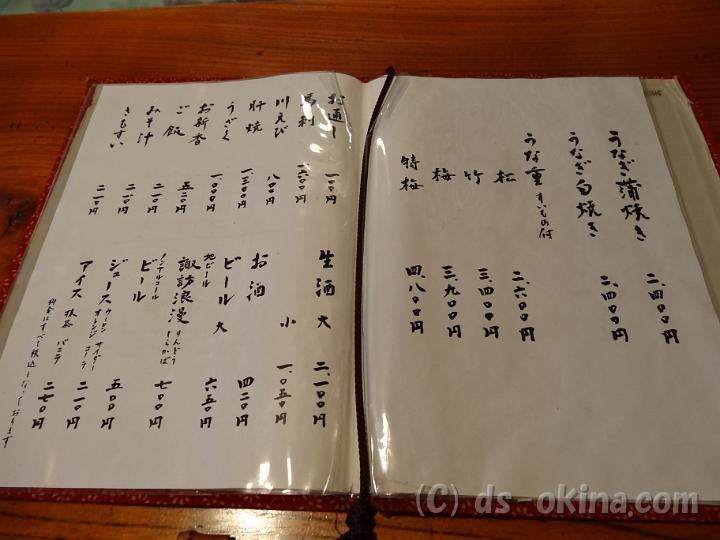 うなぎ蒲焼き 二、四〇〇円
うなぎ白焼き 二、四〇〇円
うな重 すいもの付
松 二、六〇〇円
竹 三、四〇〇円
梅 三、九〇〇円
特梅 四、八〇〇円
お通し 一〇〇円
馬刺 一、六〇〇円
川えび 八〇〇円
肝焼 一、三〇〇円
うざく 一、〇〇〇円
お新香 五二〇円
ご飯 二一〇円
みそ汁 二一〇円
きもすい 二一〇円
生酒 大 二、一〇〇円
小 一、〇五〇円
お酒 四二〇円
ビール 大 六五〇円
地ビール
諏訪浪漫 りんどう しらかば 七〇〇円
ノンアルコール
ビール 五〇〇円
ジュース ウーロン サイダー オレンジ コーラ 二一〇円
アイス 抹茶 バニラ 二七〇円
料金はすべて税込となっております
(C) ds okina.com